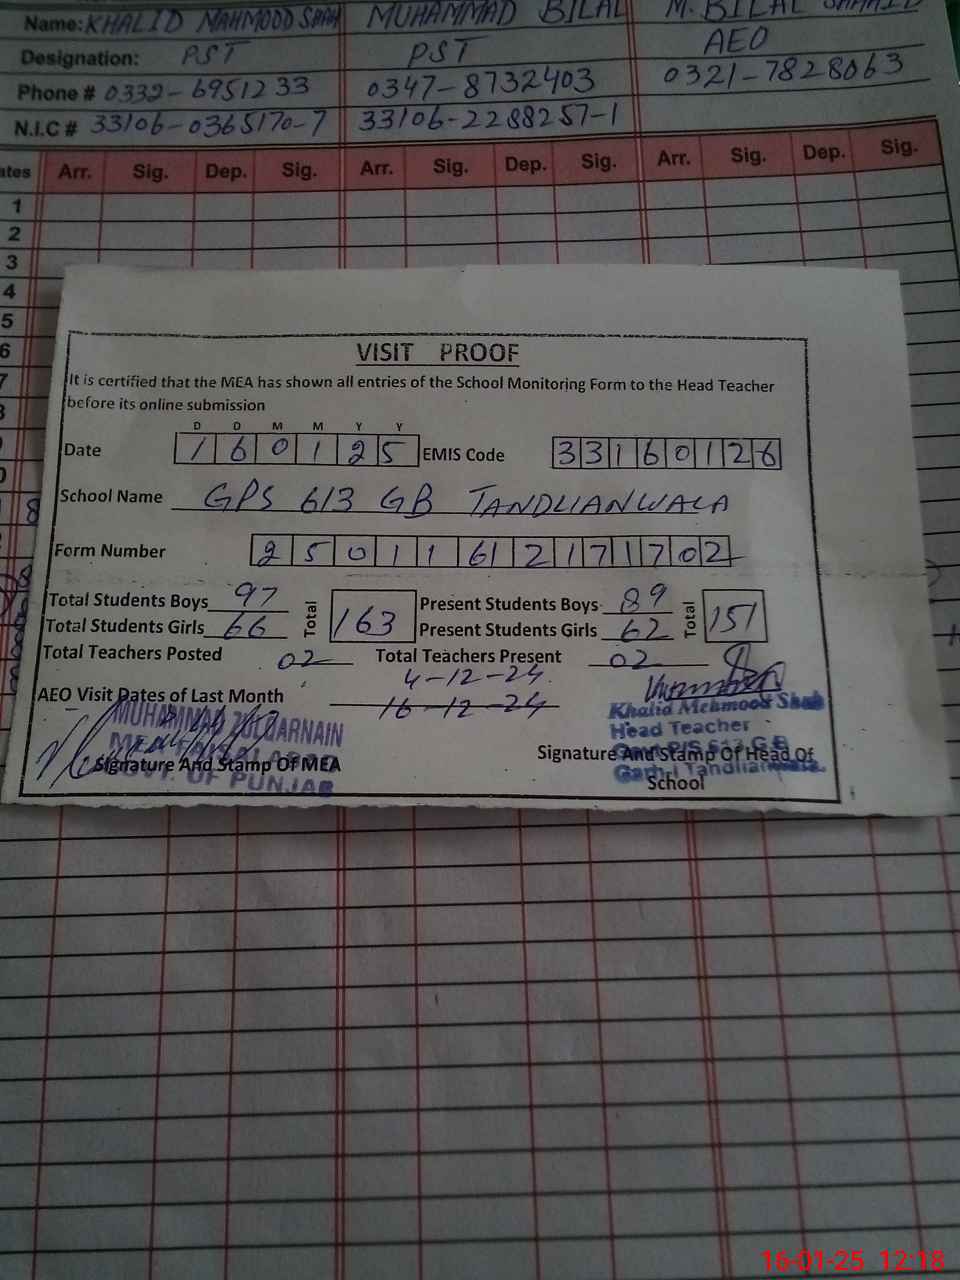 Name: KHALID MAHMOOD SHAH MUHAMMAD BILAL M. BILAL
Designation: PST PST AEO
Phone # 0332-6951233 0347-8732403 0321-7828063
N.I.C # 33106-0365170-7 33106-2288257-1
ates Arr. Sig. Dep. Sig. Arr. Sig. Dep. Sig. Arr. Sig. Dep. Sig.
1
2
3
4
5
6
7
VISIT PROOF
It is certified that the MEA has shown all entries of the School Monitoring Form to the Head Teacher
before its online submission
D D M M Y Y
Date 160125 EMIS Code 33160126
School Name GPS 613 GB TANDLIANWALA
Form Number 2501161217170 2
Total Students Boys 97 Total 163 Present Students Boys 89 Total 151
Total Students Girls 66 Present Students Girls 62
Total Teachers Posted 02 Total Teachers Present 02
4-12-24
AEO Visit Dates of Last Month 16-12-24
MUHAMMAD ZULQARNAIN Khalid Mehmood Shah
MEA FAISALABAD Head Teacher
Signature And Stamp Of MEA Signature And Stamp Of Head Of
GOVT. OF PUNJAB School
16-01-25 12:18